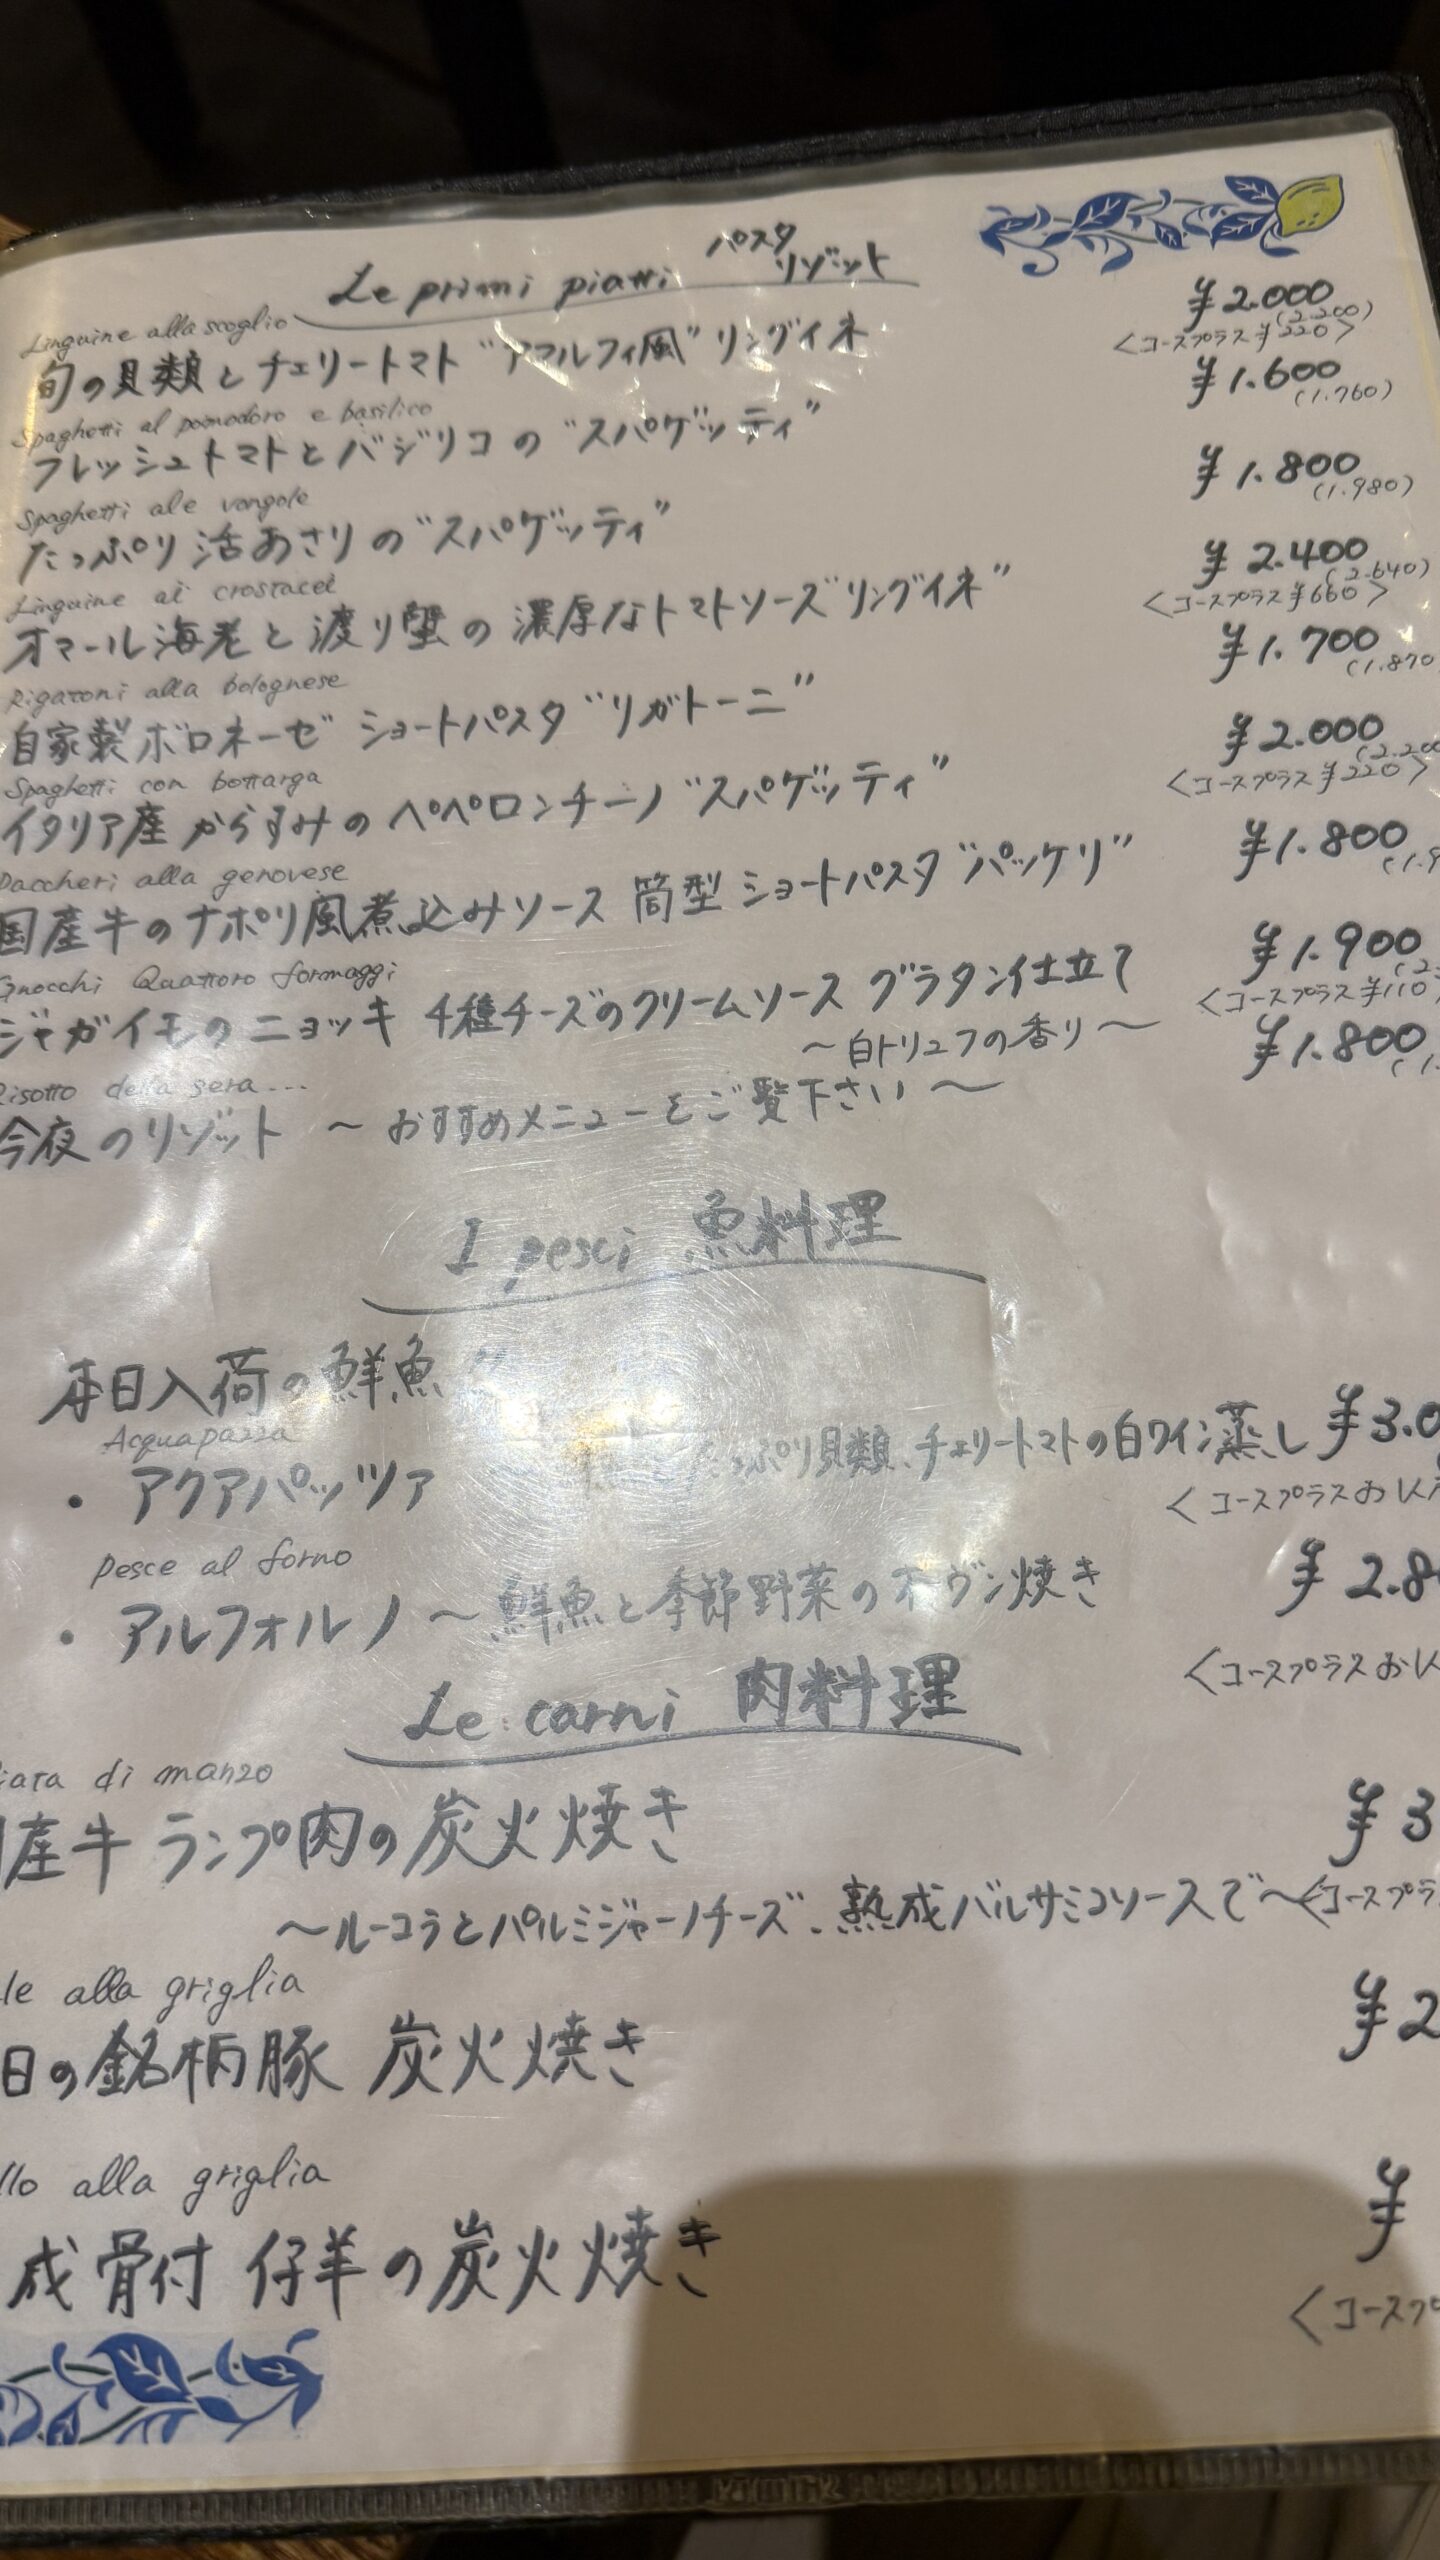 Le primi piatti パスタ
リゾット
Linguine alla scoglio
旬の貝類とチェリートマト"アマルフィ風"リングイネ ¥2.000
(2.200)
<コースプラス¥220>
Spaghetti al pomodoro e basilico
フレッシュトマトとバジリコの"スパゲッティ" ¥1.600
(1.760)
Spaghetti ale vongole
たっぷり活あさりの"スパゲッティ" ¥1.800
(1.980)
Linguine ai crostacei
オマール海老と渡り蟹の濃厚なトマトソース"リングイネ" ¥2.400
(2.640)
<コースプラス¥660>
Rigatoni alla bolognese
自家製ボロネーゼ ショートパスタ"リガトーニ" ¥1.700
(1.870
Spaghetti con bottarga
イタリア産からすみのペペロンチーノ"スパゲッティ" ¥2.000
(2.200
<コースプラス¥220>
Paccheri alla genovese
国産牛のナポリ風煮込みソース 筒型ショートパスタ"パッケリ" ¥1.800
(1.9
Gnocchi Quattoro formaggi
ジャガイモのニョッキ 4種チーズのクリームソース グラタン仕立て ¥1.900
(2
~白トリュフの香り~ <コースプラス¥110>
Risotto della sera...
今夜のリゾット ~おすすめメニューをご覧下さい~ ¥1.800
(1.
I pesci 魚料理
本日入荷の鮮魚
Acquapazza
・アクアパッツァ たっぷり貝類、チェリートマトの白ワイン蒸し ¥3.0
<コースプラスお1人
Pesce al forno
・アルフォルノ~鮮魚と季節野菜のオーヴン焼き ¥2.8
<コースプラスお1人
Le carni 肉料理
iata di manzo
産牛 ランプ肉の炭火焼き ¥3
~ルーコラとパルミジャーノチーズ、熟成バルサミコソースで~<コースプラ
le alla griglia
日の銘柄豚 炭火焼き ¥2
llo alla griglia
成骨付 仔羊の炭火焼き ¥
<コースプ